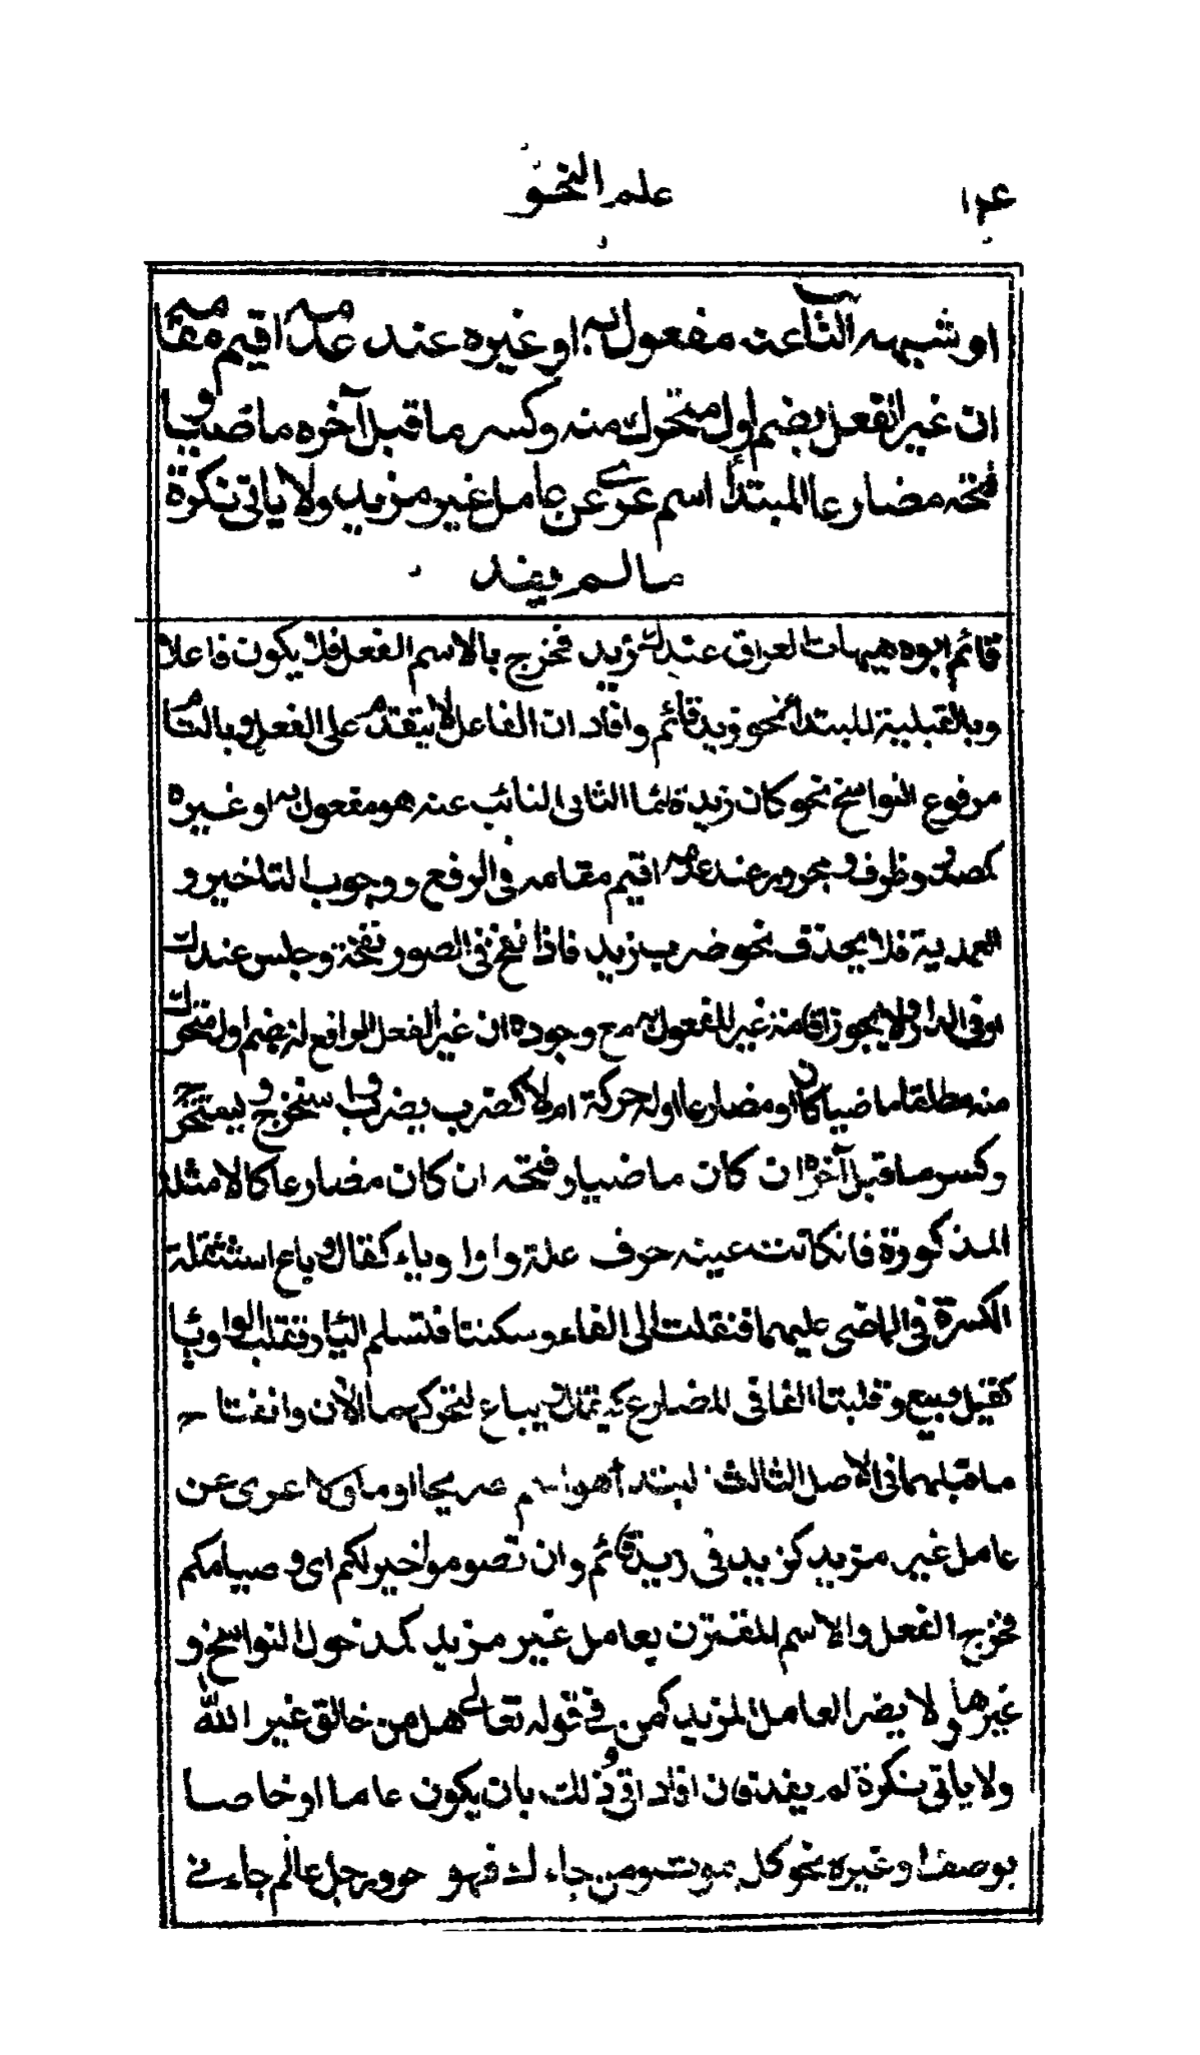 علم النحو
او شبهه الثانى النائب عنه مفعول به او غيره عند عدمه اقيم مقامه
ان غير الفعل بضم اول متحرك منه وكسر ما قبل آخره ماضيا و
فتحه مضارعا المبتدأ اسم عرى عن عامل غير مزيد ولا ياتى نكرة
ما لم يفد
قائم ابوه هيهات العراق عندك زيد فخرج بالاسم الفعل فلا يكون فاعلا
وبالقبلية المبتدأ نحو زيد قائم وافاد ان الفاعل لا يتقدم على الفعل وبالتام
مرفوع النواسخ نحو كان زيد قائما الثانى النائب عنه هو مفعول به او غيره
كمصدر وظرف ومجرور عند عدمه اقيم مقامه فى الرفع ووجوب التاخير و
العمدية فلا يحذف نحو ضرب زيد فاذا نفخ فى الصور نفخة وجلس عندك
او فى الدار ولا يجوز اقامة غير المفعول به مع وجوده ان غير الفعل الواقع له بضم اول متحرك
منه مطلقا ماضيا كان او مضارعا اوله حركة ام لا كضرب يضرب و استخرج و يستخرج
وكسر ما قبل آخره ان كان ماضيا وفتحه ان كان مضارعا كالامثلة
المذكورة فان كانت عينه حرف علة واوا وياء كقال وباع استثقلت
الكسرة فى الماضى عليهما فنقلت الى الفاء وسكنتا فتسلم الياء وتقلب الواو ياء
كقيل وبيع وقلبتا الفا فى المضارع كيقال ويباع لتحركهما الآن وانفتاح
ما قبلهما فى الاصل الثالث المبتدأ هو اسم صريحا او ماولا عرى عن
عامل غير مزيد كزيد فى زيد قائم وان تصوموا خير لكم اى و صيامكم
فخرج الفعل والاسم المقترن بعامل غير مزيد كمدخول النواسخ و
غيرها ولا يضر العامل المزيد كمن فى قوله تعالى هل من خالق غير الله
ولا ياتى نكرة لم يفد فان افاد اتى وذلك بان يكون عاما او خاصا
بوصف او غيره نحو كل يموت ومن جاءك فهو حر ورجل عالم جاءنى